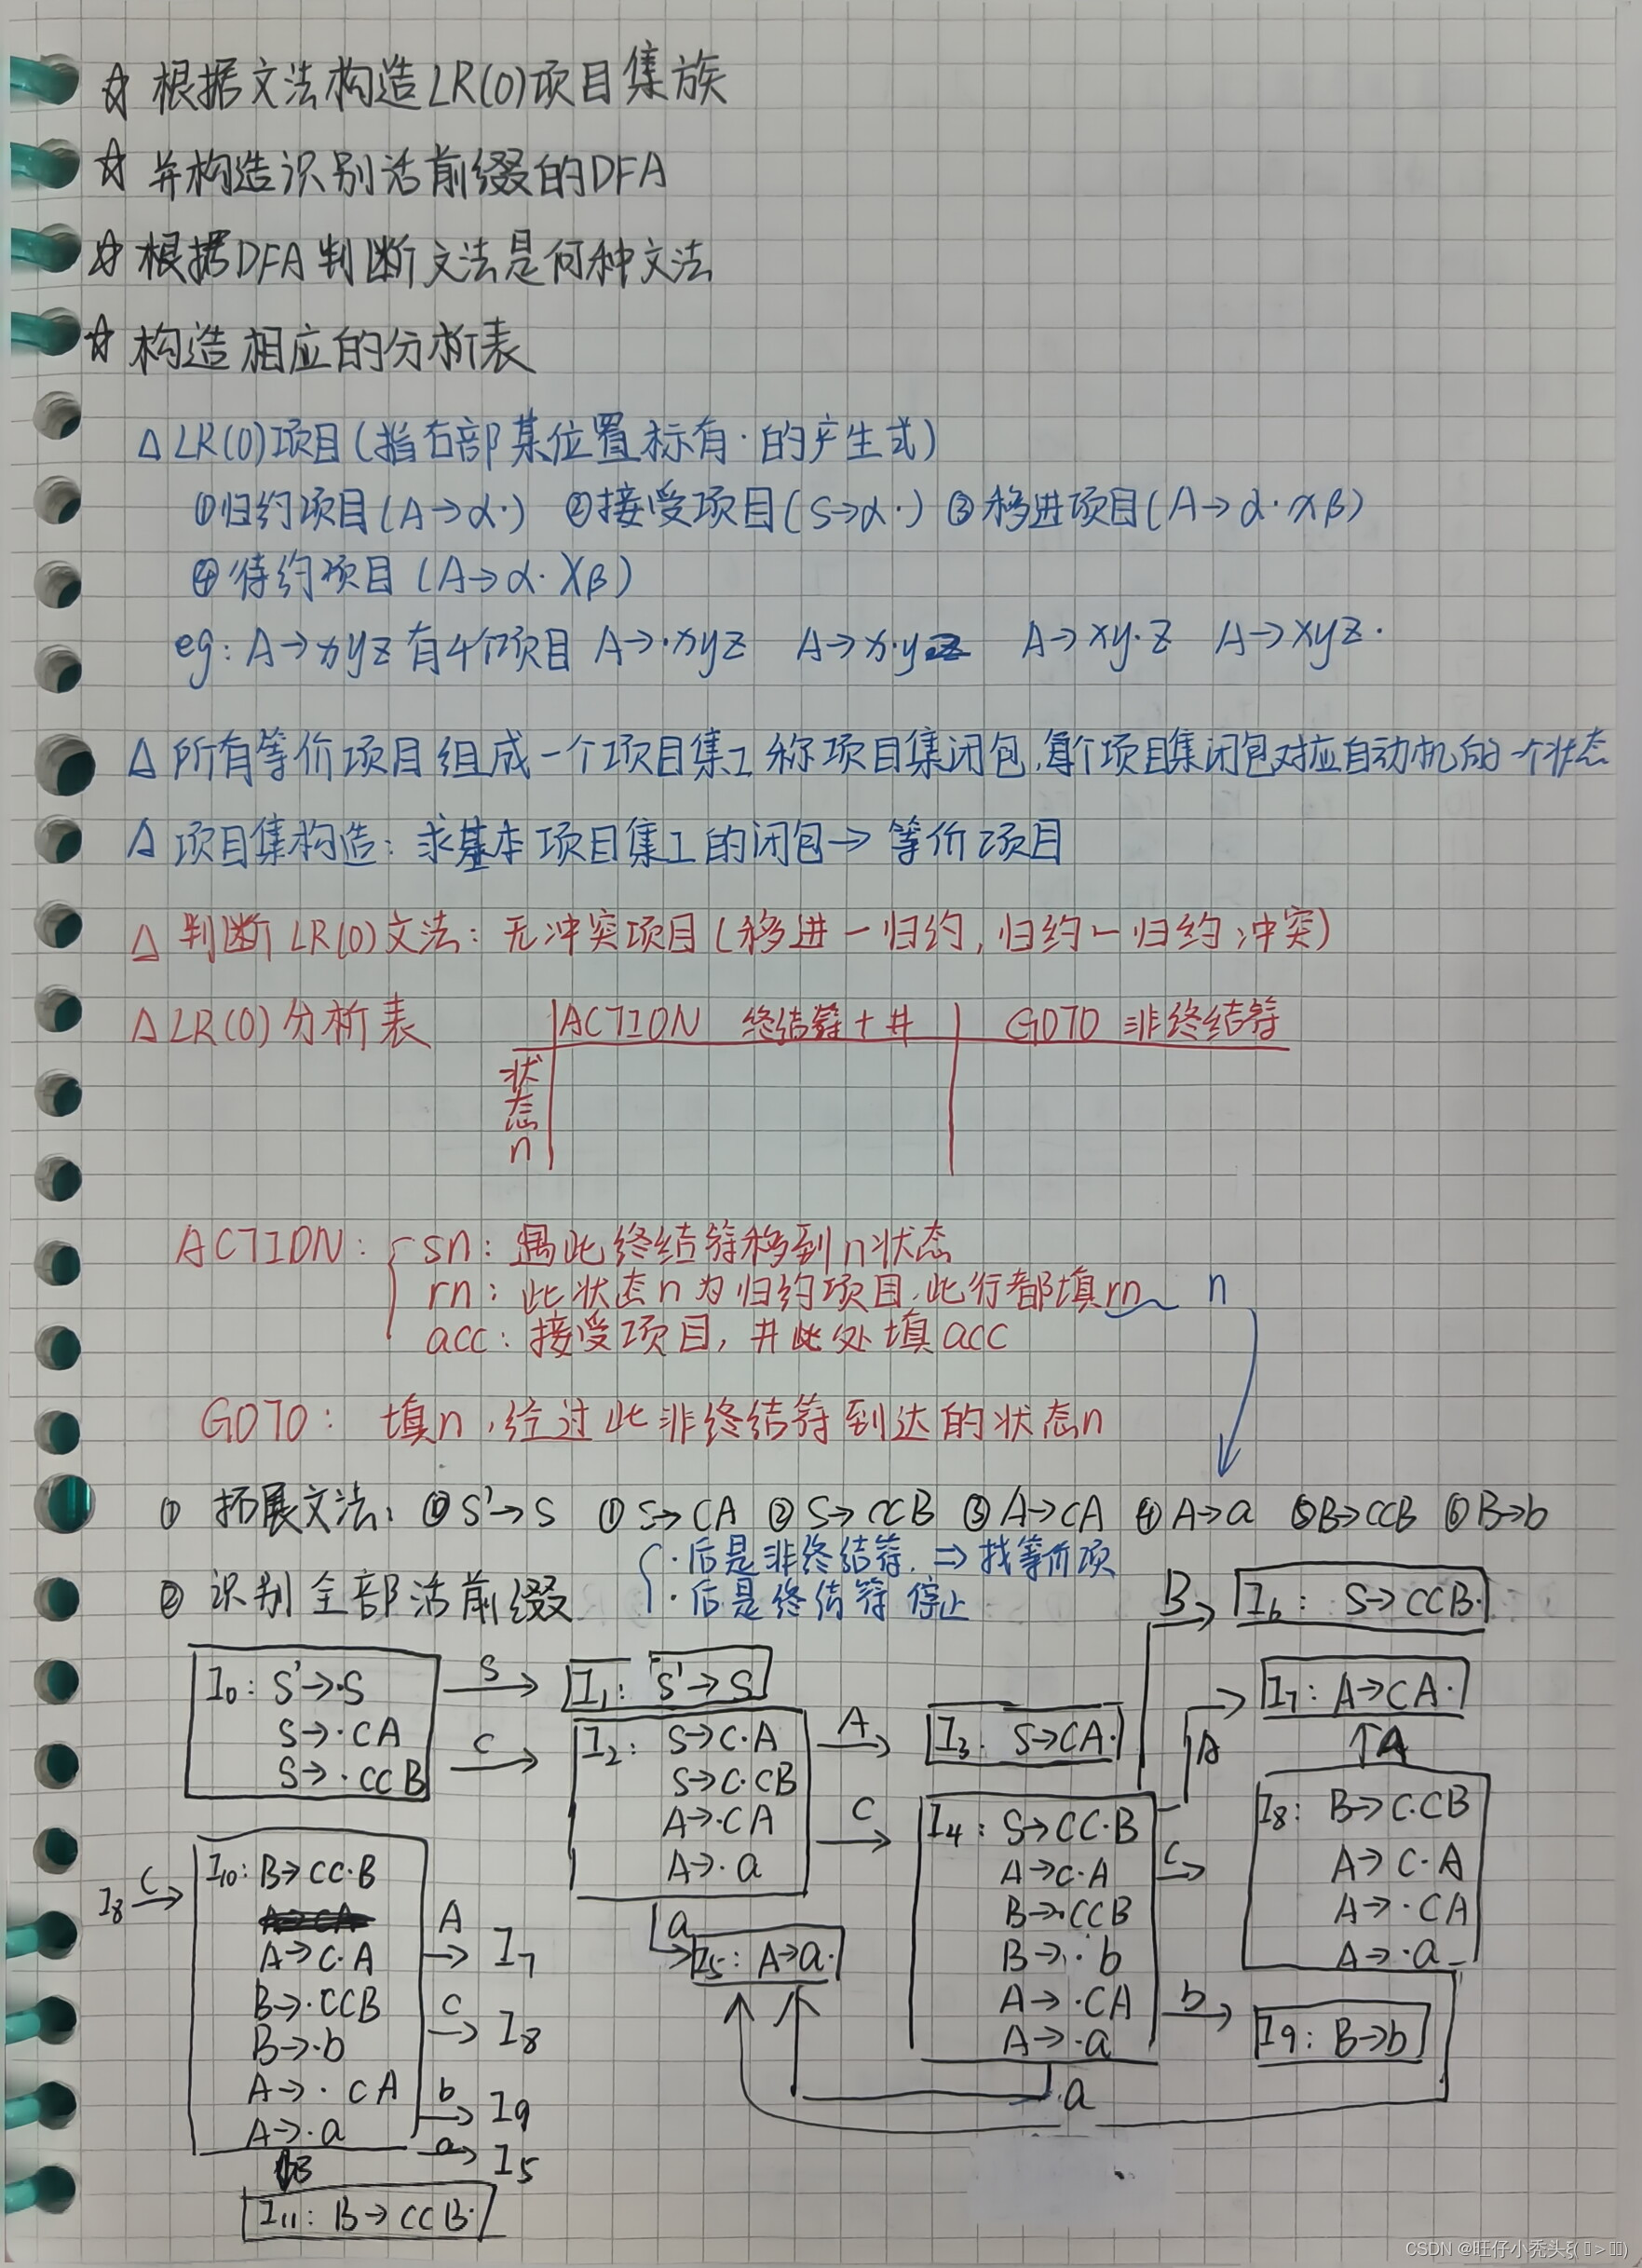 ☆ 根据文法构造LR(0)项目集族
☆ 并构造识别活前缀的DFA
☆ 根据DFA判断文法是何种文法
☆ 构造相应的分析表
△ LR(0)项目(指右部某位置标有·的产生式)
①归约项目(A→α·) ②接受项目(S→α·) ③移进项目(A→α·xβ)
④待约项目(A→α·Xβ)
eg: A→xyz有4个项目 A→·xyz A→x·yz A→xy·z A→xyz·
△ 所有等价项目组成一个项目集I,称项目集闭包,每个项目集闭包对应自动机的一个状态
△ 项目集构造: 求基本项目集I的闭包→等价项目
△ 判断LR(0)文法: 无冲突项目(移进-归约, 归约-归约 冲突)
△ LR(0)分析表 ACTION 终结符+# GOTO 非终结符
状态n
ACTION: { sn: 遇此终结符移到n状态
rn: 此状态n为归约项目,此行都填rn n
acc: 接受项目, #此处填acc
GOTO: 填n,经过此非终结符到达的状态n
① 拓展文法: ⓪S'→S ①S→cA ②S→ccB ③A→cA ④A→a ⑤B→ccB ⑥B→b
{ ·后是非终结符 ⇒ 找等价项
② 识别全部活前缀 ·后是终结符 停止
B→ I6: S→ccB·
I0: S'→·S S→ I1: S'→S
S→·cA
S→·ccB c→
I2: S→c·A A→ I3: S→cA·
S→c·cB
A→·cA c→
A→·a
a→ I5: A→a·
I4: S→cc·B
A→c·A
B→·ccB
B→·b
A→·cA
A→·a
A I7: A→cA·
↑A
c→ I8: B→c·cB
A→c·A
A→·cA
A→·a
b→ I9: B→b
a
I8 c→ I10: B→cc·B
A→c·A A→ I7
B→·ccB c→ I8
B→·b
A→·cA b→ I9
A→·a a→ I5
↓B
I11: B→ccB·
CSDN @旺仔小秃头